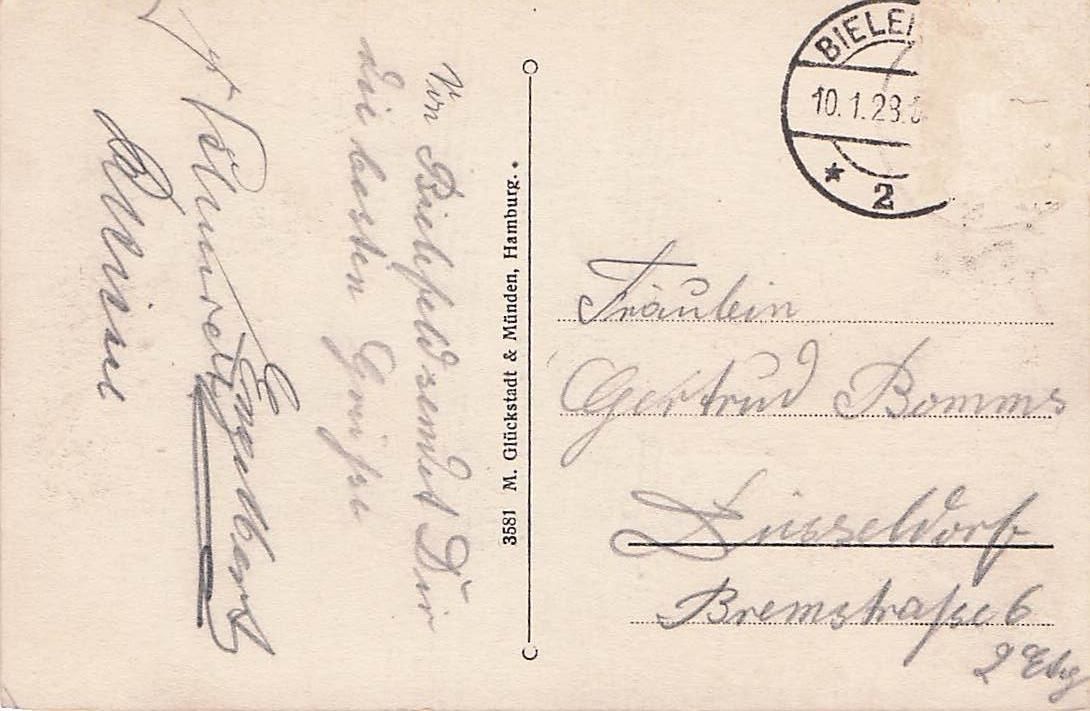 Von Bielefeld sendet Dir
die besten Grüsse
3581 M. Glückstadt & Münden, Hamburg.
BIELEF
10.1.28.
* 2
Fräulein
Gertrud Bomms
Düsseldorf
Bremstraße 6
2 Etg